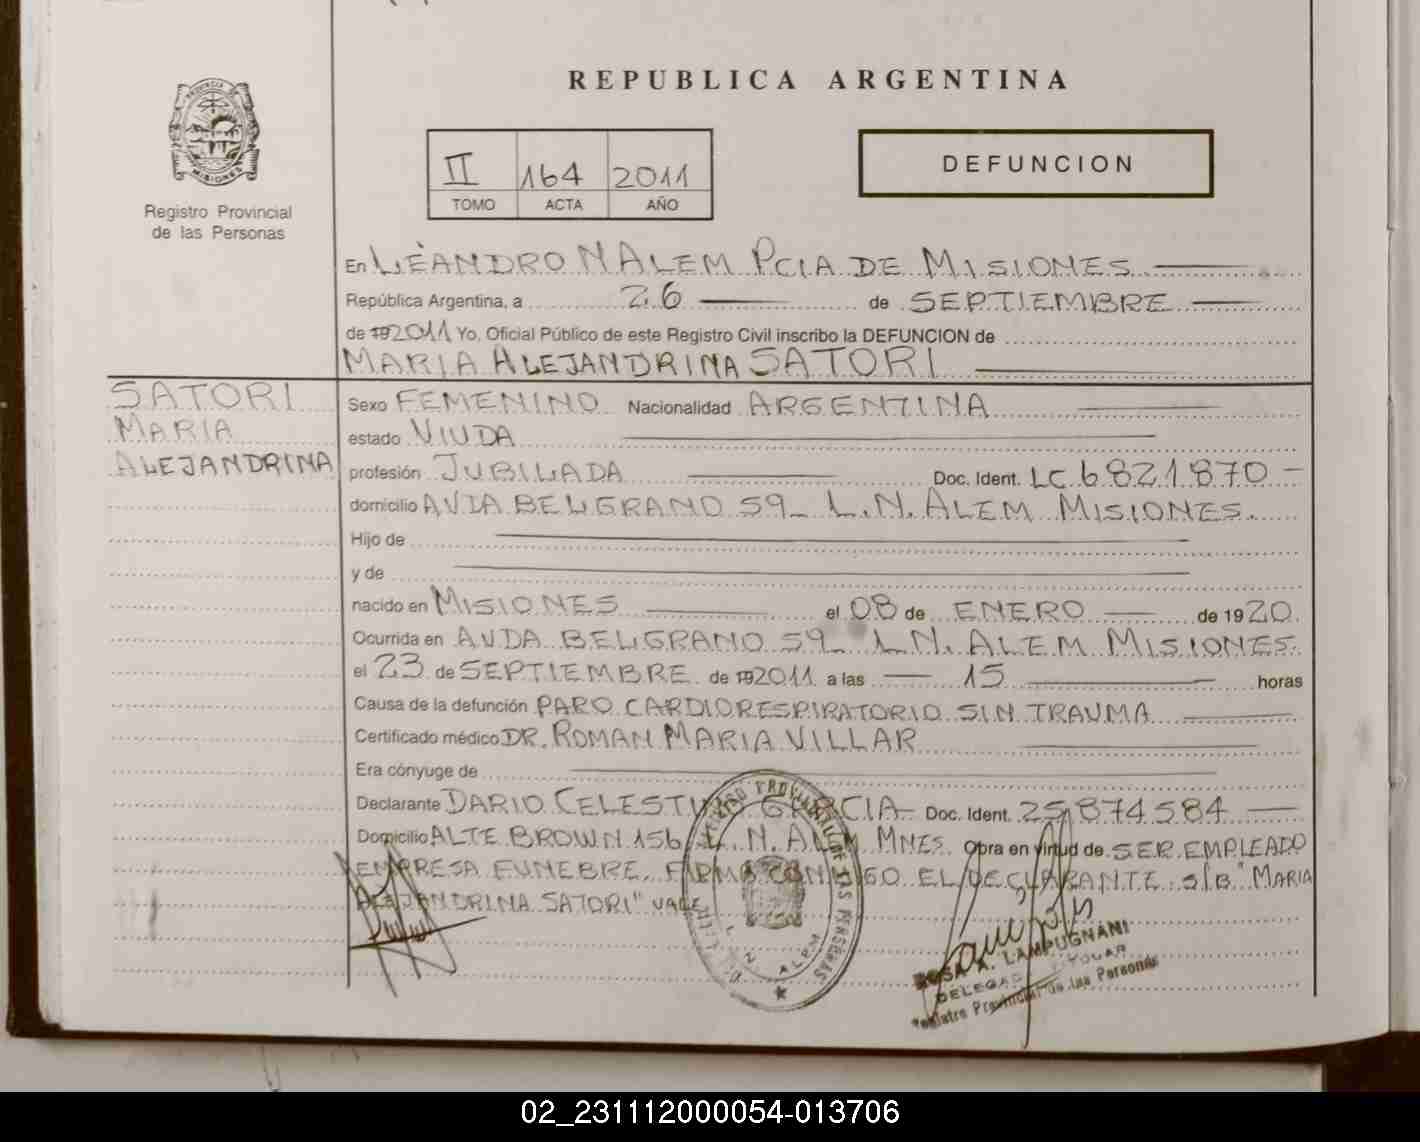 REPUBLICA ARGENTINA
PROVINCIA DE
MISIONES
Registro Provincial
de las Personas
II 164 2011
TOMO ACTA AÑO
DEFUNCION
En LEANDRO N ALEM PCIA DE MISIONES
República Argentina, a 26 de SEPTIEMBRE
de 192011 Yo, Oficial Público de este Registro Civil inscribo la DEFUNCION de
MARIA ALEJANDRINA SATORI
SATORI
MARIA
ALEJANDRINA
Sexo FEMENINO Nacionalidad ARGENTINA
estado VIUDA
profesión JUBILADA Doc. Ident. LC 6821870
domicilio AVDA BELGRANO 59 L.N. ALEM MISIONES.
Hijo de
y de
nacido en MISIONES el 08 de ENERO de 1920
Ocurrida en AVDA BELGRANO 59 L.N. ALEM MISIONES.
el 23 de SEPTIEMBRE de 192011 a las 15 horas
Causa de la defunción PARO CARDIORESPIRATORIO SIN TRAUMA
Certificado médico DR. ROMAN MARIA VILLAR
Era cónyuge de
Declarante DARIO CELESTINO GARCIA Doc. Ident. 25874584
Domicilio ALTE BROWN 156 L.N. ALEM MNES. Obra en virtud de SER EMPLEADO
EMPRESA FUNEBRE. FIRMA CONMIGO EL DECLARANTE. S/B "MARIA
ALEJANDRINA SATORI" VALE
REGISTRO PROVINCIAL DE LAS PERSONAS
L. N. ALEM
ROSA A. LAMPUGNANI
DELEGADA TITULAR
Registro Provincial de las Personas
02_231112000054-013706